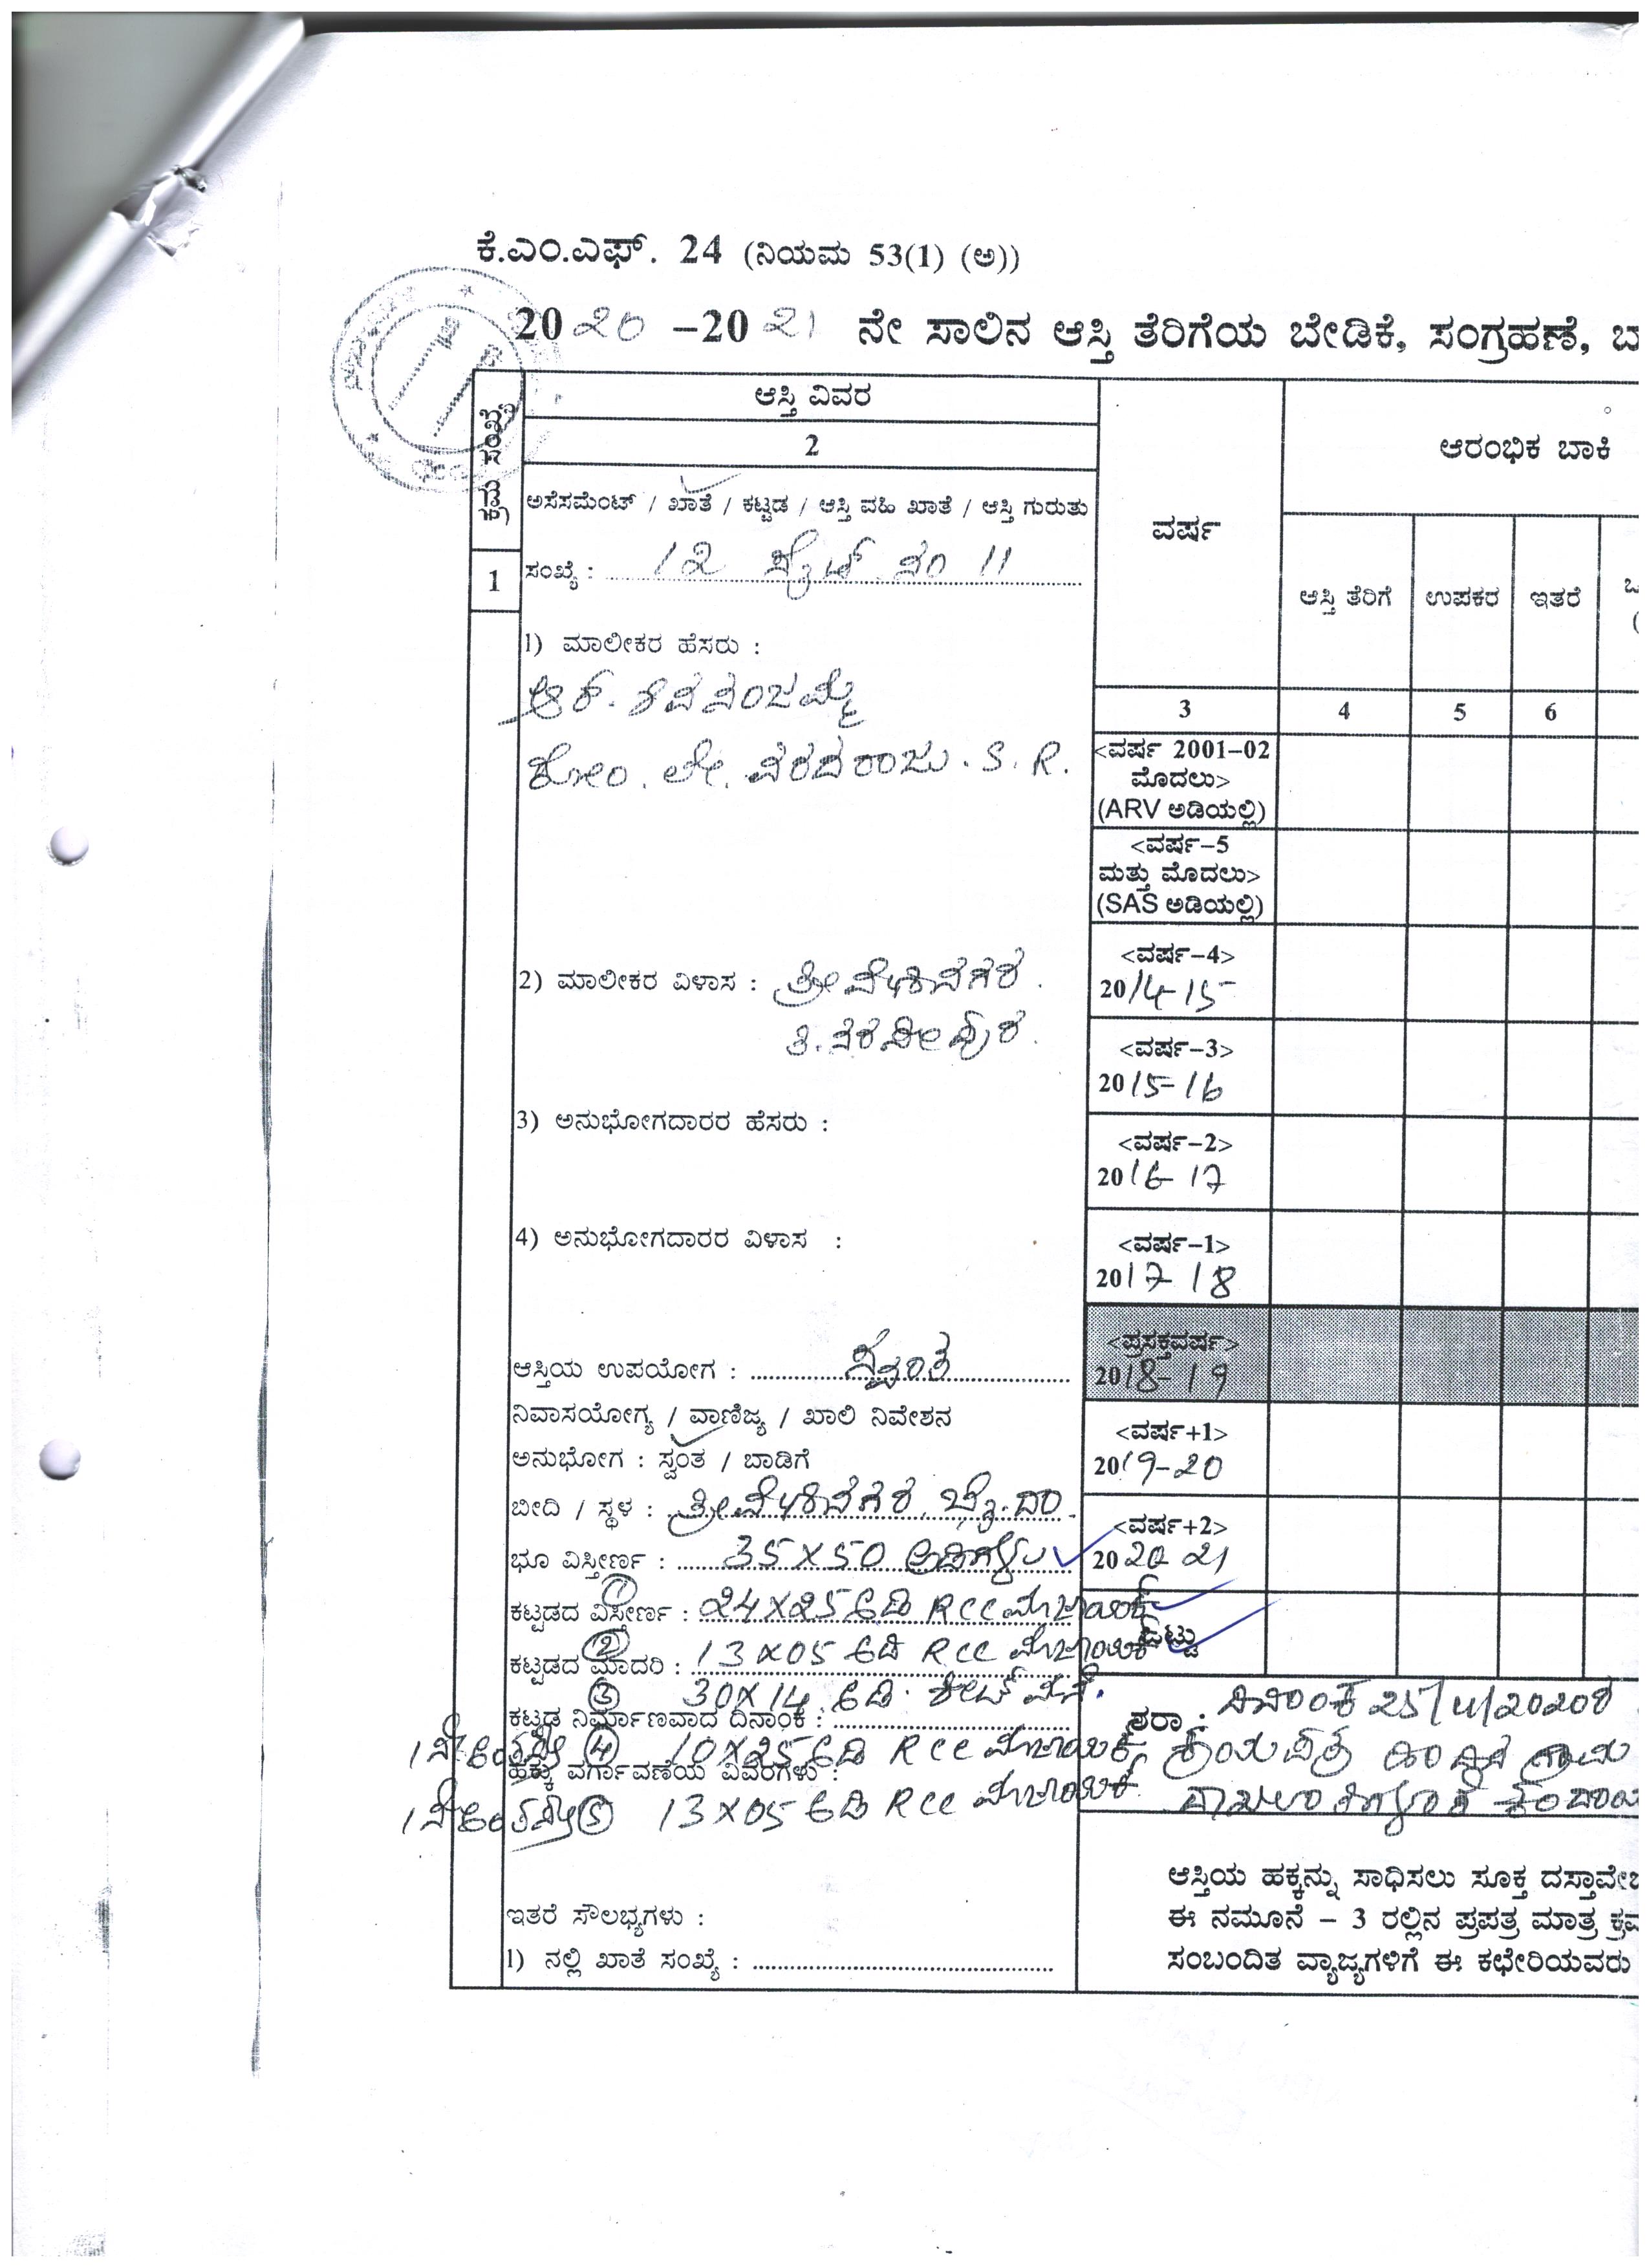 ಕೆ.ಎಂ.ಎಫ್. 24 (ನಿಯಮ 53(1) (ಅ))
2020 –2021 ನೇ ಸಾಲಿನ ಆಸ್ತಿ ತೆರಿಗೆಯ ಬೇಡಿಕೆ, ಸಂಗ್ರಹಣೆ,
ಕ್ರಮ ಸಂಖ್ಯೆ
ಆಸ್ತಿ ವಿವರ
2
ಅಸೆಸಮೆಂಟ್ / ಖಾತೆ / ಕಟ್ಟಡ / ಆಸ್ತಿ ವಹಿ ಖಾತೆ / ಆಸ್ತಿ ಗುರುತು
ಸಂಖ್ಯೆ : 12 ಸೈಟ್ ನಂ 11
1
ವರ್ಷ
ಆರಂಭಿಕ ಬಾಕಿ
ಆಸ್ತಿ ತೆರಿಗೆ
ಉಪಕರ
ಇತರೆ
3 4 5 6
1) ಮಾಲೀಕರ ಹೆಸರು :
ಆರ್. ಶಿವನಂಜಮ್ಮ
ಕೋಂ. ಲೇ. ವರದರಾಜು. S. R.
<ವರ್ಷ 2001–02
ಮೊದಲು>
(ARV ಅಡಿಯಲ್ಲಿ)
<ವರ್ಷ–5
ಮತ್ತು ಮೊದಲು>
(SAS ಅಡಿಯಲ್ಲಿ)
2) ಮಾಲೀಕರ ವಿಳಾಸ :
ತಿ. ನರಸೀಪುರ.
<ವರ್ಷ–4>
2014-15
<ವರ್ಷ–3>
2015-16
3) ಅನುಭೋಗದಾರರ ಹೆಸರು :
<ವರ್ಷ–2>
2016-17
4) ಅನುಭೋಗದಾರರ ವಿಳಾಸ :
<ವರ್ಷ–1>
2017-18
ಆಸ್ತಿಯ ಉಪಯೋಗ : ಸ್ವಂತ
<ಪ್ರಸಕ್ತವರ್ಷ>
2018-19
ನಿವಾಸಯೋಗ್ಯ / ವಾಣಿಜ್ಯ / ಖಾಲಿ ನಿವೇಶನ
ಅನುಭೋಗ : ಸ್ವಂತ / ಬಾಡಿಗೆ
<ವರ್ಷ+1>
2019-20
ಬೀದಿ / ಸ್ಥಳ :
ಭೂ ವಿಸ್ತೀರ್ಣ : 35X50 ಅಡಿಗಳು
<ವರ್ಷ+2>
2020-21
ಕಟ್ಟಡದ ವಿಸ್ತೀರ್ಣ : 1 24X25 ಅಡಿ RCC
ಕಟ್ಟಡದ ಮಾದರಿ : 2 13X05 ಅಡಿ RCC
ಒಟ್ಟು
3 30X14 ಅಡಿ. ಶೀಟ್ ಮನೆ.
ಕಟ್ಟಡ ನಿರ್ಮಾಣವಾದ ದಿನಾಂಕ :
ಷರಾ : ದಿನಾಂಕ
4 10X25 ಅಡಿ RCC
ಕ್ರಯಪತ್ರ
ಹಕ್ಕು ವರ್ಗಾವಣೆಯ ವಿವರಗಳು :
5 13X05 ಅಡಿ RCC
ಆಸ್ತಿಯ ಹಕ್ಕನ್ನು ಸಾಧಿಸಲು ಸೂಕ್ತ
ಇತರೆ ಸೌಲಭ್ಯಗಳು :
ಈ ನಮೂನೆ – 3 ರಲ್ಲಿನ ಪ್ರಪತ್ರ ಮಾತ್ರ
1) ನಲ್ಲಿ ಖಾತೆ ಸಂಖ್ಯೆ :
ಸಂಬಂದಿತ ವ್ಯಾಜ್ಯಗಳಿಗೆ ಈ ಕಛೇರಿಯವರು